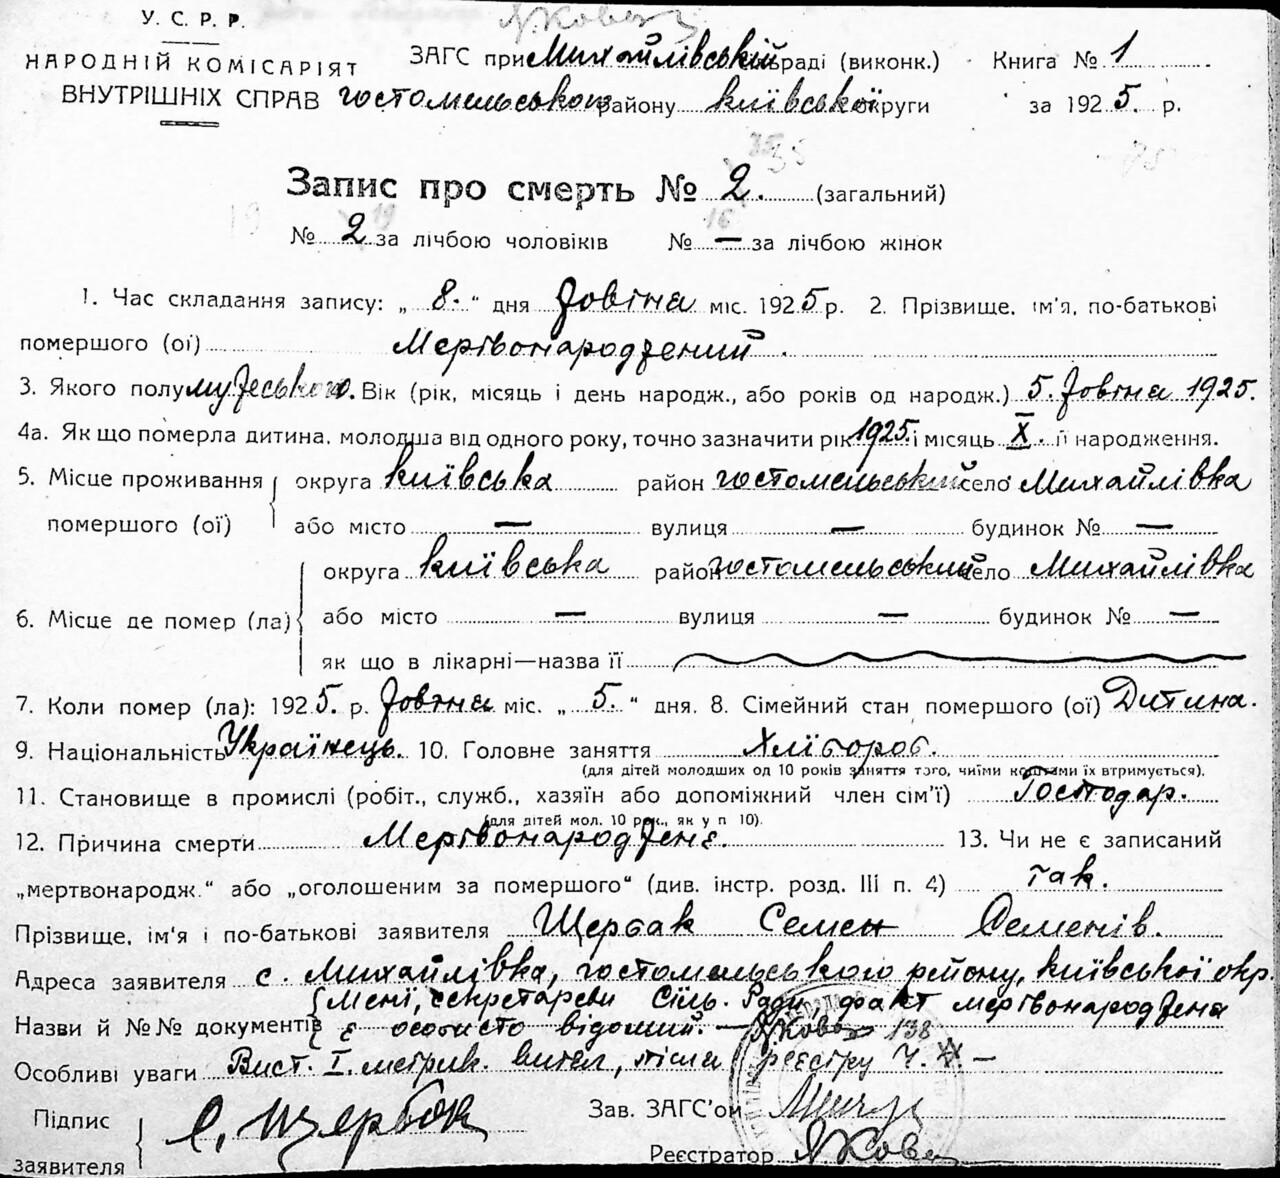 У. С. Р. Р.
НАРОДНІЙ КОМІСАРІЯТ
ВНУТРІШНІХ СПРАВ
ЗАГС при Михайлівській сільраді (виконк.) Книга № 1
Гостомельського району Київської округи за 1925. р.
35 35 75
Запис про смерть № 2. (загальний)
19 19 16
№ 2 за лічбою чоловіків № — за лічбою жінок
1. Час складання запису: „ 8. “ дня Жовтня міс. 1925 р. 2. Прізвище, ім'я, по-батькові
помершого (ої) Мертвонароджений.
3. Якого полу мужеського. Вік (рік, місяць і день народж., або років од народж.) 5. Жовтня 1925.
4а. Як що померла дитина, молодша від одного року, точно зазначити рік 1925. і місяць X. її народження.
5. Місце проживання округа Київська район Гостомельський село Михайлівка
помершого (ої) або місто — вулиця — будинок № —
округа Київська район Гостомельський село Михайлівка
6. Місце де помер (ла) або місто — вулиця — будинок № —
як що в лікарні—назва її
7. Коли помер (ла): 1925. р. Жовтня міс. „ 5. “ дня. 8. Сімейний стан помершого (ої) Дитина.
9. Національність Українець. 10. Головне заняття Хлібороб.
(для дітей молодших од 10 років заняття того, чиїми коштами їх втримується).
11. Становище в промислі (робіт., служб., хазяїн або допоміжний член сім'ї) Господар.
(для дітей мол. 10 рок., як у п 10).
12. Причина смерти Мертвонароджене. 13. Чи не є записаний
„мертвонародж.“ або „оголошеним за помершого“ (див. інстр. розд. III п. 4) так.
Прізвище, ім'я і по-батькові заявителя Щербак Семен Семенів.
Адреса заявителя с. Михайлівка, Гостомельського району, Київської окр.
Мені, секретареви Сіль. Ради, факт мертвонародження
Назви й №№ документів є особисто відомий. — 138
Особливі уваги Вист. I. метрик. витяг, після реєстру Ч.
Підпис
заявителя С. Щербак
Зав. ЗАГС'ом
Реєстратор